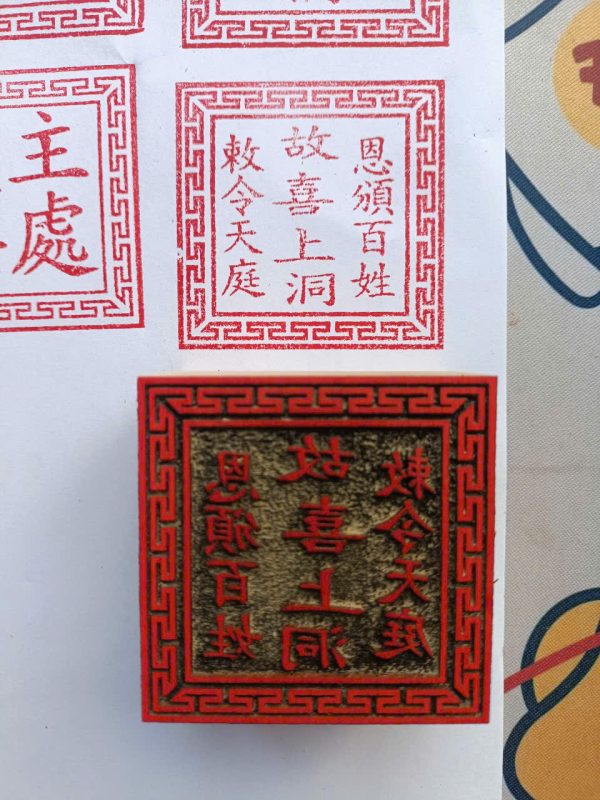 恩頒百姓
故喜上洞
敕令天庭
主處
恩頒百姓
故喜上洞
敕令天庭